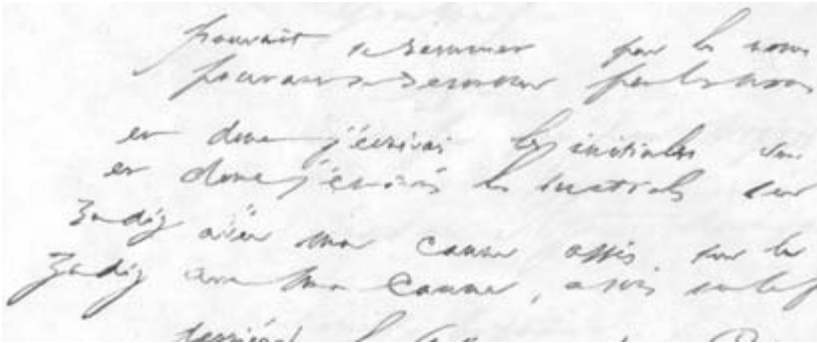 pouvait se résumer par les noms
pouvait se résumer par les noms
et dont j'écrivais les initiales sur
et dont j'écrivais les initiales sur
Zadig avec ma canne assis sur le
Zadig avec ma canne, assis sur le p